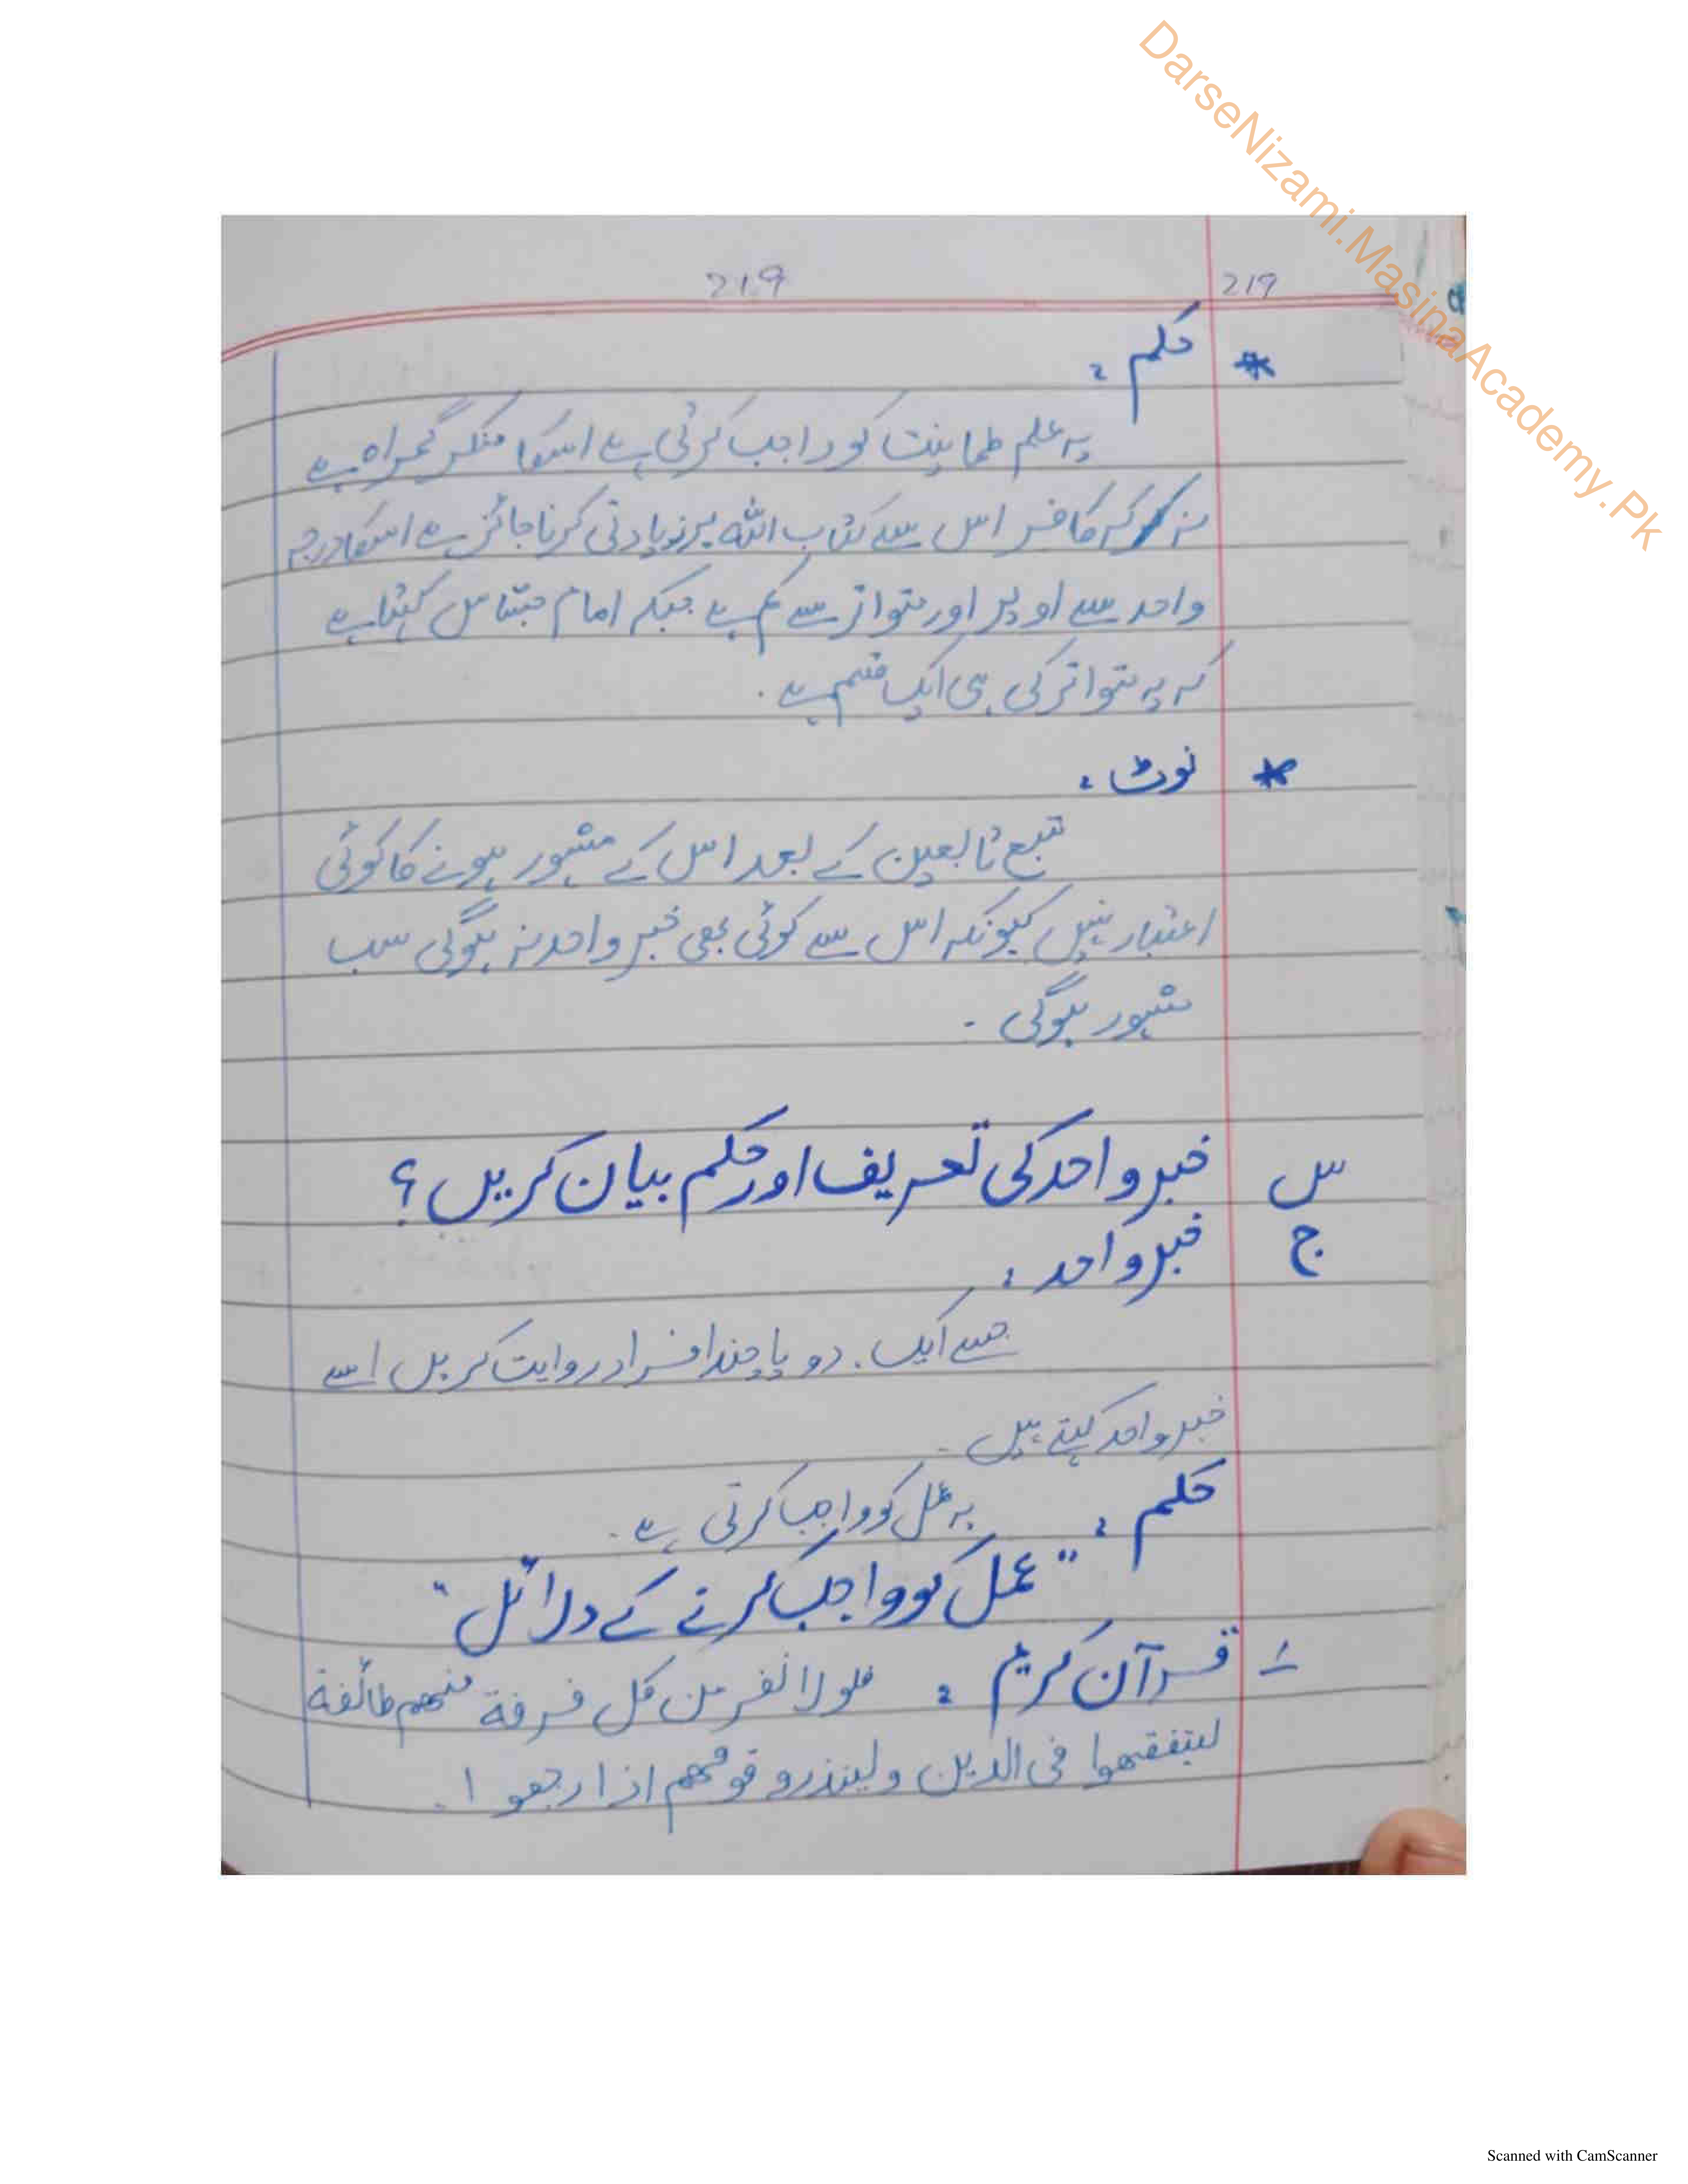 DarseNizami.MasinaAcademy.Pk
219
219
* حکم :
یہ علم طمانیت کو واجب کرتی ہے اسکا منکر گمراہ ہے
نہ کہ کافر اس سے کتاب اللہ پر زیادتی کرنا جائز ہے اسکا درجہ
واحد سے اوپر اور متواتر سے کم ہے جبکہ امام جصاص کہتا ہے
کہ یہ متواتر کی ہی ایک قسم ہے ۔
* نوٹ :
تبع تابعین کے بعد اس کے مشہور ہونے کا کوئی
اعتبار نہیں کیونکہ اس سے کوئی بھی خبر واحد نہ ہوگی سب
مشہور ہوگی ۔
س خبر واحد کی تعریف اور حکم بیان کریں ؟
ج خبر واحد :
جسے ایک ، دو یا چند افراد روایت کریں اسے
خبر واحد کہتے ہیں ۔
حکم : یہ عمل کو واجب کرتی ہے ۔
" عمل کو واجب کرنے کے دلائل "
۱ قرآن کریم : فلولا نفر من کل فرقة منھم طائفة
لیتفقھوا فی الدین ولینذرو قومھم اذا رجعوا ۔
Scanned with CamScanner